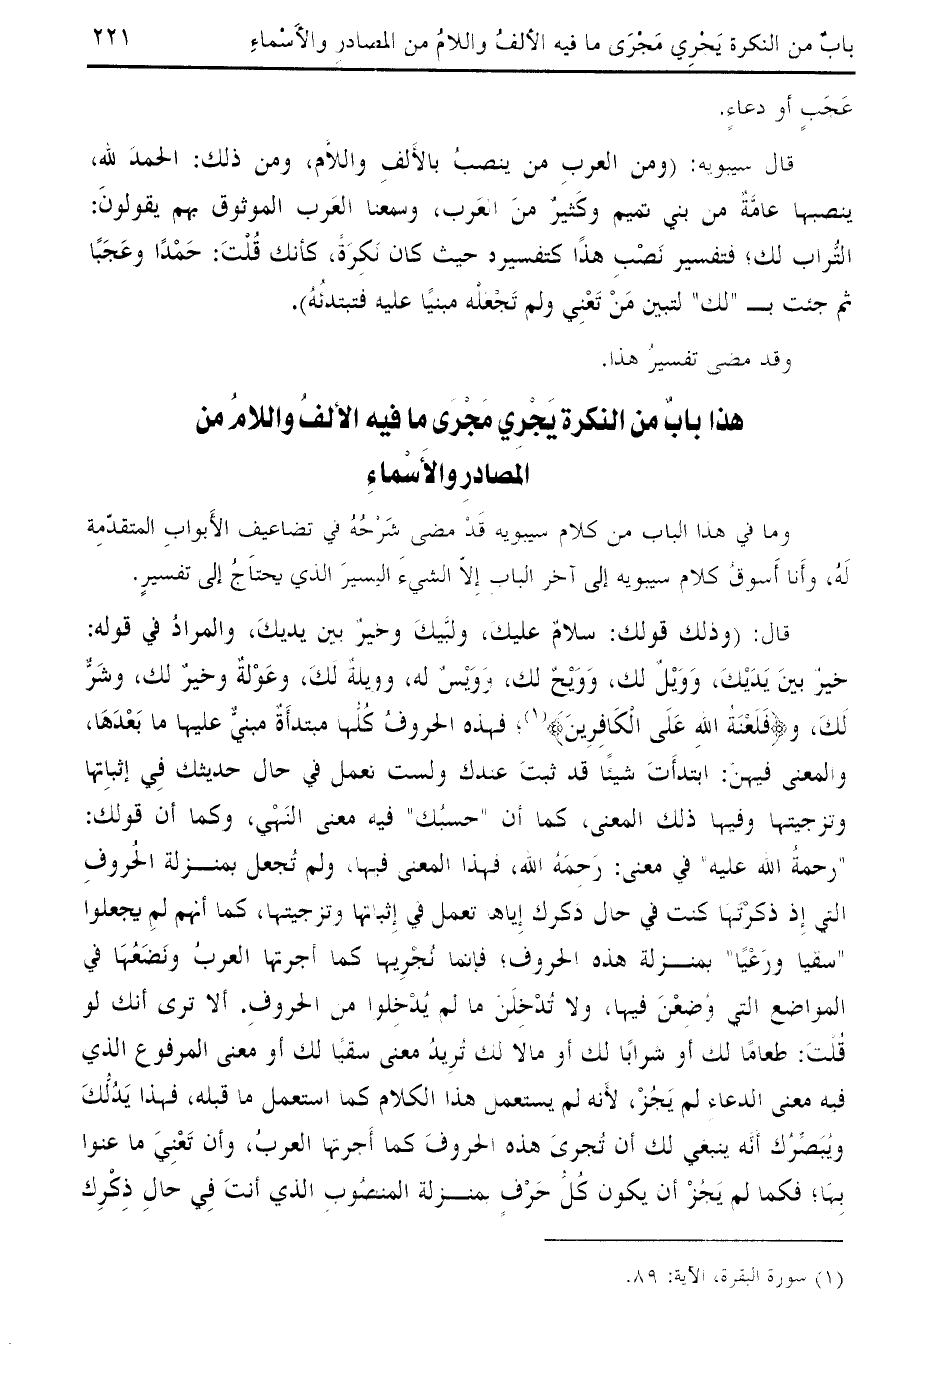 بابٌ من النكرة يَجْرِي مَجْرَى ما فيه الألفُ واللامُ من المصادرِ والأَسْماءِ ٢٢١
عَجَبٍ أو دعاءٍ.
قال سيبويه: (ومن العربِ من ينصبُ بالأَلفِ واللام، ومن ذلك: الحمدَ لله،
ينصبها عامَّةٌ من بني تميم وكَثيرٌ منَ العَرب، وسمعنا العَرب الموثوق بهم يقولونَ:
التُراب لك؛ فتفسير نَصْب هذا كتفسيره حيث كان نَكرَةً، كأنك قُلْتَ: حَمْدًا وعَجَبًا
ثم جئت بـ "لك" لتبين مَنْ تَعْنِي ولم تَجْعَلْه مبنيًا عليه فتبتدئُهُ).
وقد مضى تفسيرُ هذا.
هذا بابٌ من النكرة يَجْرِي مَجْرَى ما فيه الألفُ واللامُ من
المصادرِ والأَسْماءِ
وما في هذا الباب من كلام سيبويه قَدْ مضى شَرْحُهُ في تضاعيف الأَبوابِ المتقدّمة
لَهُ، وأَنا أَسوقُ كلام سيبويه إلى آخر الباب إلاّ الشيءَ اليسيرَ الذي يحتاجُ إلى تفسيرٍ.
قال: (وذلك قولك: سلامٌ عليكَ، ولبَّيكَ وخيرٌ بين يديكَ، والمرادُ في قوله:
خيرٌ بين يَدَيْكَ، وَوَيْلٌ لك، وَوَيْحٌ لك، وَوَيْسٌ له، وويلةٌ لَكَ، وعَوْلةٌ وخيرٌ لك، وشَرٌّ
لَكَ، و﴿فَلَعْنَةُ اللهِ عَلَى الْكَافِرِينَ﴾(١)؛ فهذه الحروفُ كُلُّها مبتدأَةٌ مبنيٌّ عليها ما بَعْدَهَا،
والمعنى فيهنَ: ابتدأتَ شيئًا قد ثبتَ عندك ولست تعمل في حال حديثك فِي إثباتِها
وتزجيتها وفيها ذلك المعنى، كما أن "حسبُك" فيه معنى النَهْي، وكما أن قولكَ:
"رحمةُ الله عليه" في معنى: رَحِمَهُ الله، فهذا المعنى فيها، ولم تُجعل بمنـزلة الحُروفِ
التي إذ ذكرْتَهَا كنت في حال ذكرك إياها تعمل في إثباتها وتزجيتها، كما أنهم لم يجعلوا
"سقيا ورَعْيًا" بمنـزلة هذه الحروف؛ فإنما تُجْرِيها كما أجرتها العربُ ونَضَعُهَا في
المواضع التي وُضِعْنَ فيها، ولا تُدْخلَنَ ما لم يُدْخِلوا من الحروفِ. ألا ترى أنك لو
قُلْتَ: طعامًا لك أو شرابًا لك أو مالا لك تُريدُ معنى سقيًا لك أو معنى المرفوع الذي
فيه معنى الدعاء لم يَجُزْ، لأنه لم يستعمل هذا الكلام كما استعمل ما قبله، فهذا يَدُلُّكَ
ويُبَصِّرُك أنه ينبغي لك أن تُجرىَ هذه الحروفَ كما أَجرتها العربُ، وأن تَعْنِيَ ما عنوا
بِهَا؛ فكما لم يَجُزْ أن يكون كُلُّ حَرْفٍ بمنـزلة المنصُوب الذي أنتَ فِي حالِ ذِكْرِك
(١) سورة البقرة، الآية: ٨٩.